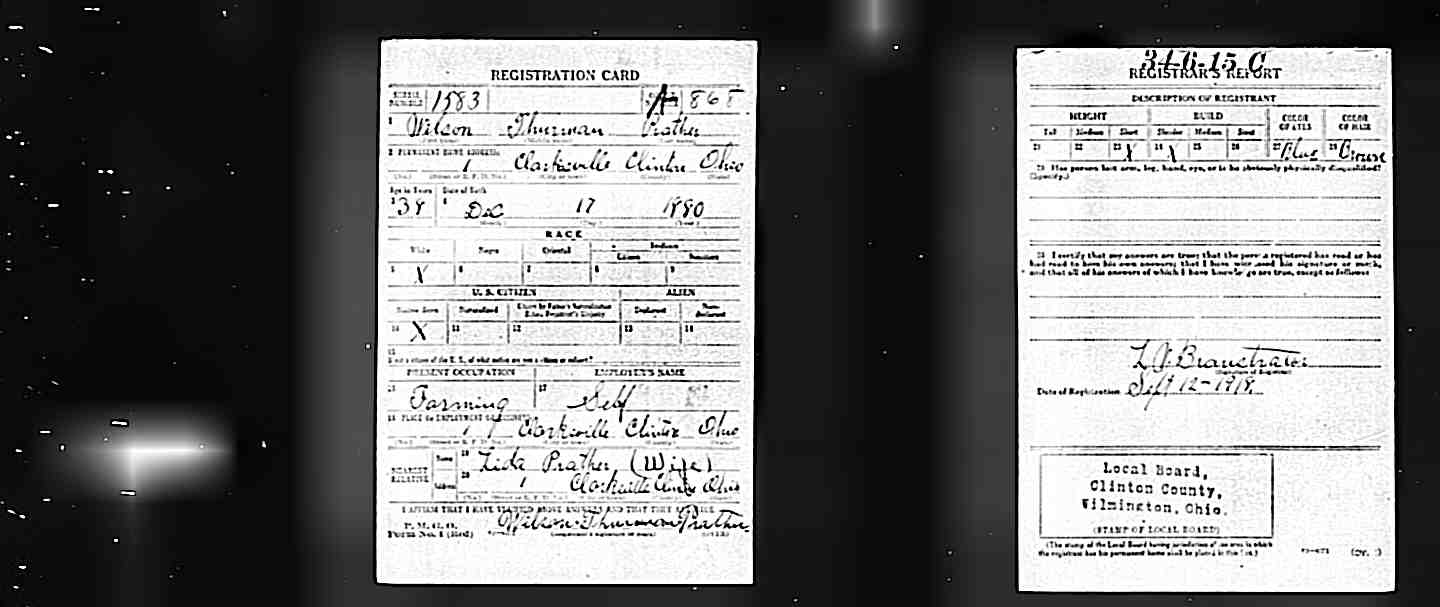 REGISTRATION CARD
SERIAL NUMBER 1583
1 Wilson Thurman Prather
2 PERMANENT HOME ADDRESS:
1 Clarksville Clinton Ohio
(No.) (Street or R. F. D. No.) (City or town) (County) (State)
Age in Years Date of Birth
3 4 Dec 17 1880
(Month.) (Day.) (Year.)
RACE
White Negro Oriental Indian
Citizen Noncitizen
5 X 6 7 8 9
U. S. CITIZEN ALIEN
Native Born Naturalized Declarant Non-declarant
10 X 11 12 13 14
15
If not a citizen of the U. S., of what nation are you a citizen or subject?
PRESENT OCCUPATION EMPLOYER'S NAME
16 Farming 17 Self
18 PLACE OF EMPLOYMENT OR BUSINESS:
1 Clarksville Clinton Ohio
(No.) (Street or R. F. D. No.) (City or town) (County) (State)
NEAREST RELATIVE
Name 19 Lida Prather (Wife)
Address 20 1 Clarksville Clinton Ohio
I AFFIRM THAT I HAVE VERIFIED ABOVE ANSWERS AND THAT THEY ARE TRUE
P. M. G. O.
Form No. 1 (Red) Wilson Thurman Prather
34-6-15 C
REGISTRAR'S REPORT
DESCRIPTION OF REGISTRANT
HEIGHT BUILD COLOR OF EYES COLOR OF HAIR
Tall Medium Short Slender Medium Stout
21 22 23 X 24 X 25 26 27 Blue 28 Brown
29 Has person lost arm, leg, hand, eye, or is he obviously physically disqualified?
(Specify.)
30 I certify that my answers are true; that the person registered has read or has
had read to him his own answers; that I have witnessed his signature or mark,
and that all of his answers of which I have knowledge are true, except as follows:
(Signature of Registrar)
Date of Registration Sept 12-1918
Local Board,
Clinton County,
Wilmington, Ohio.
(STAMP OF LOCAL BOARD)
(The stamp of the Local Board having jurisdiction of the area in which
the registrant has his permanent home shall be placed in this box.)